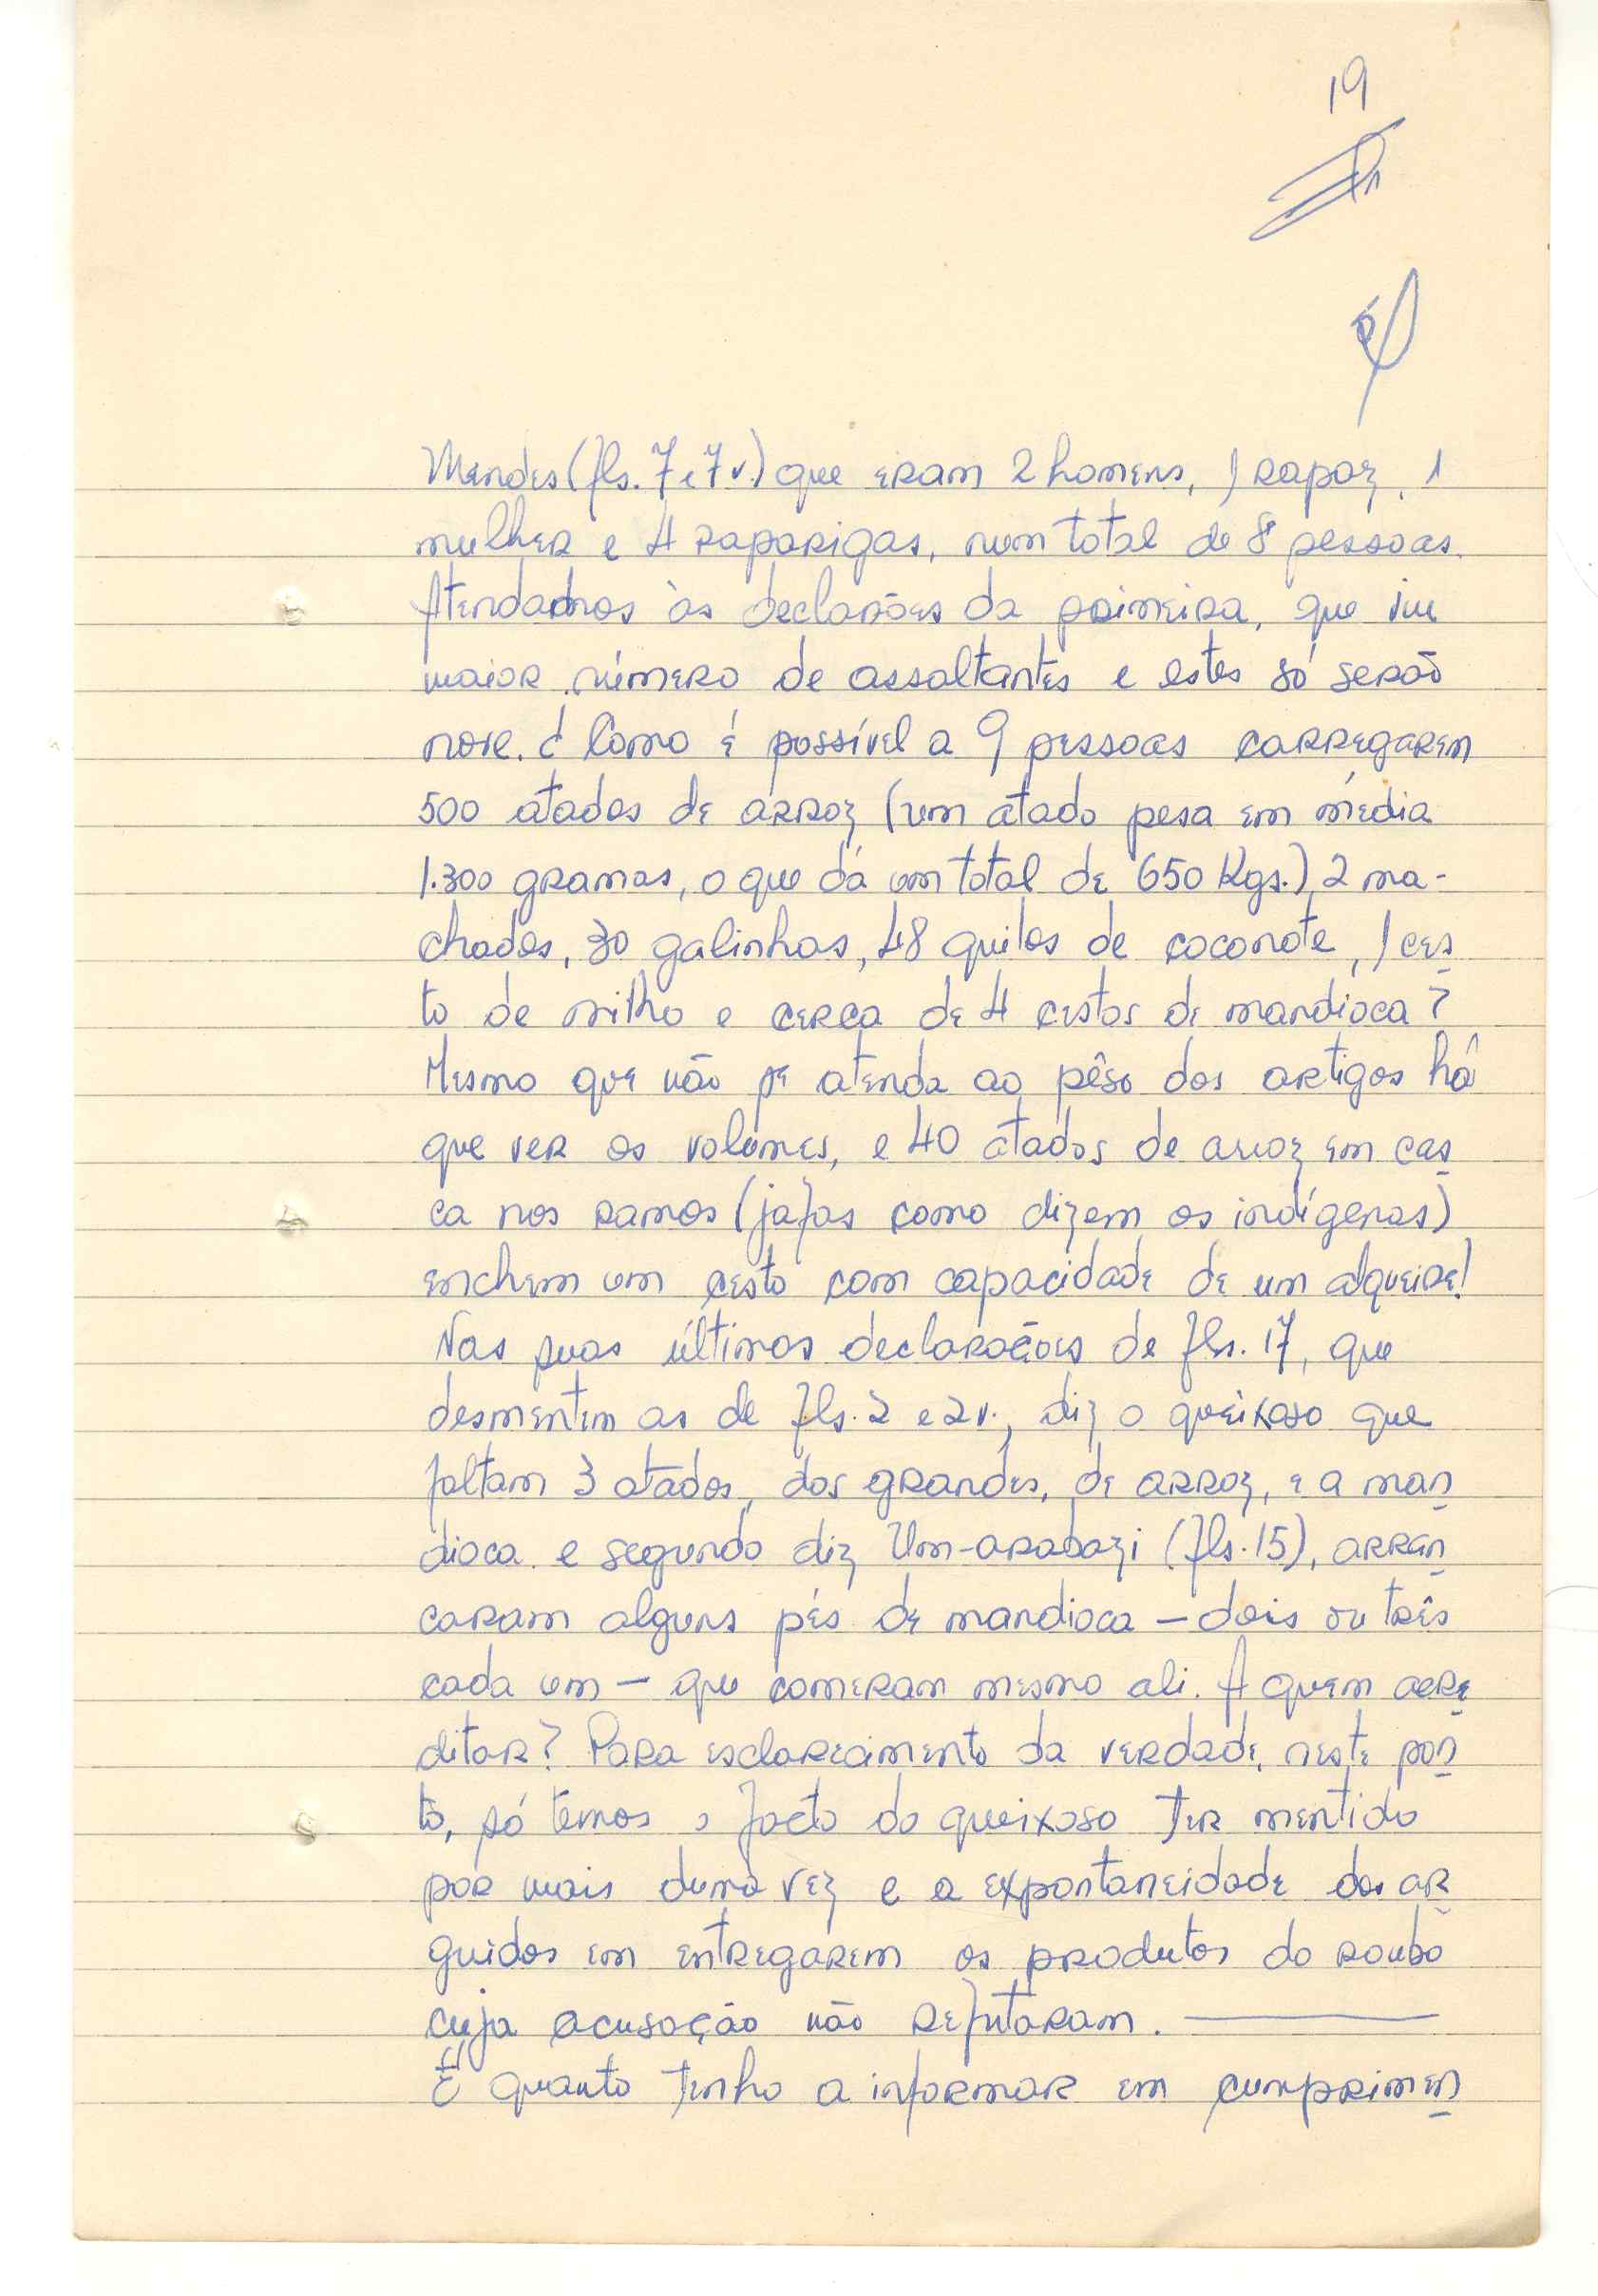 19
Mendes (fls. 7 e 7 v.) que eram 2 homens, 1 rapaz, 1
mulher e 4 raparigas, num total de 8 pessoas.
Atendamos às declarões da primeira, que viu
maior número de assaltantes e estes só serão
nove. ¿ Como é possível a 9 pessoas carregarem
500 atados de arroz (um atado pesa em média
1.300 gramas, o que dá um total de 650 Kgs.) 2 ma-
chados, 30 galinhas, 48 quilos de coconote, 1 ces
to de milho e cerca de 4 cestos de mandioca?
Mesmo que não se atenda ao pêso dos artigos há
que ver os volumes, e 40 atados de arroz em cas
ca nos ramos (jafas como dizem os indígenas)
enchem um cesto com capacidade de um alqueire!
Nas suas últimas declarações de fls. 17, que
desmentem as de fls. 2 e 2v., diz o queixoso que
faltam 3 atados, dos grandes, de arroz, e a man
dioca e segundo diz Um-arabazi (fls. 15), arran
caram alguns pés de mandioca — dois ou três
cada um — que comeram mesmo ali. A quem acre
ditar? Para esclarecimento da verdade, neste pon
to, só temos o facto do queixoso ter mentido
por mais duma vez e a expontaneidade dos ar
guidos em entregarem os produtos do roubo
cuja acusação não refutaram.
É quanto tenho a informar em cumprimen